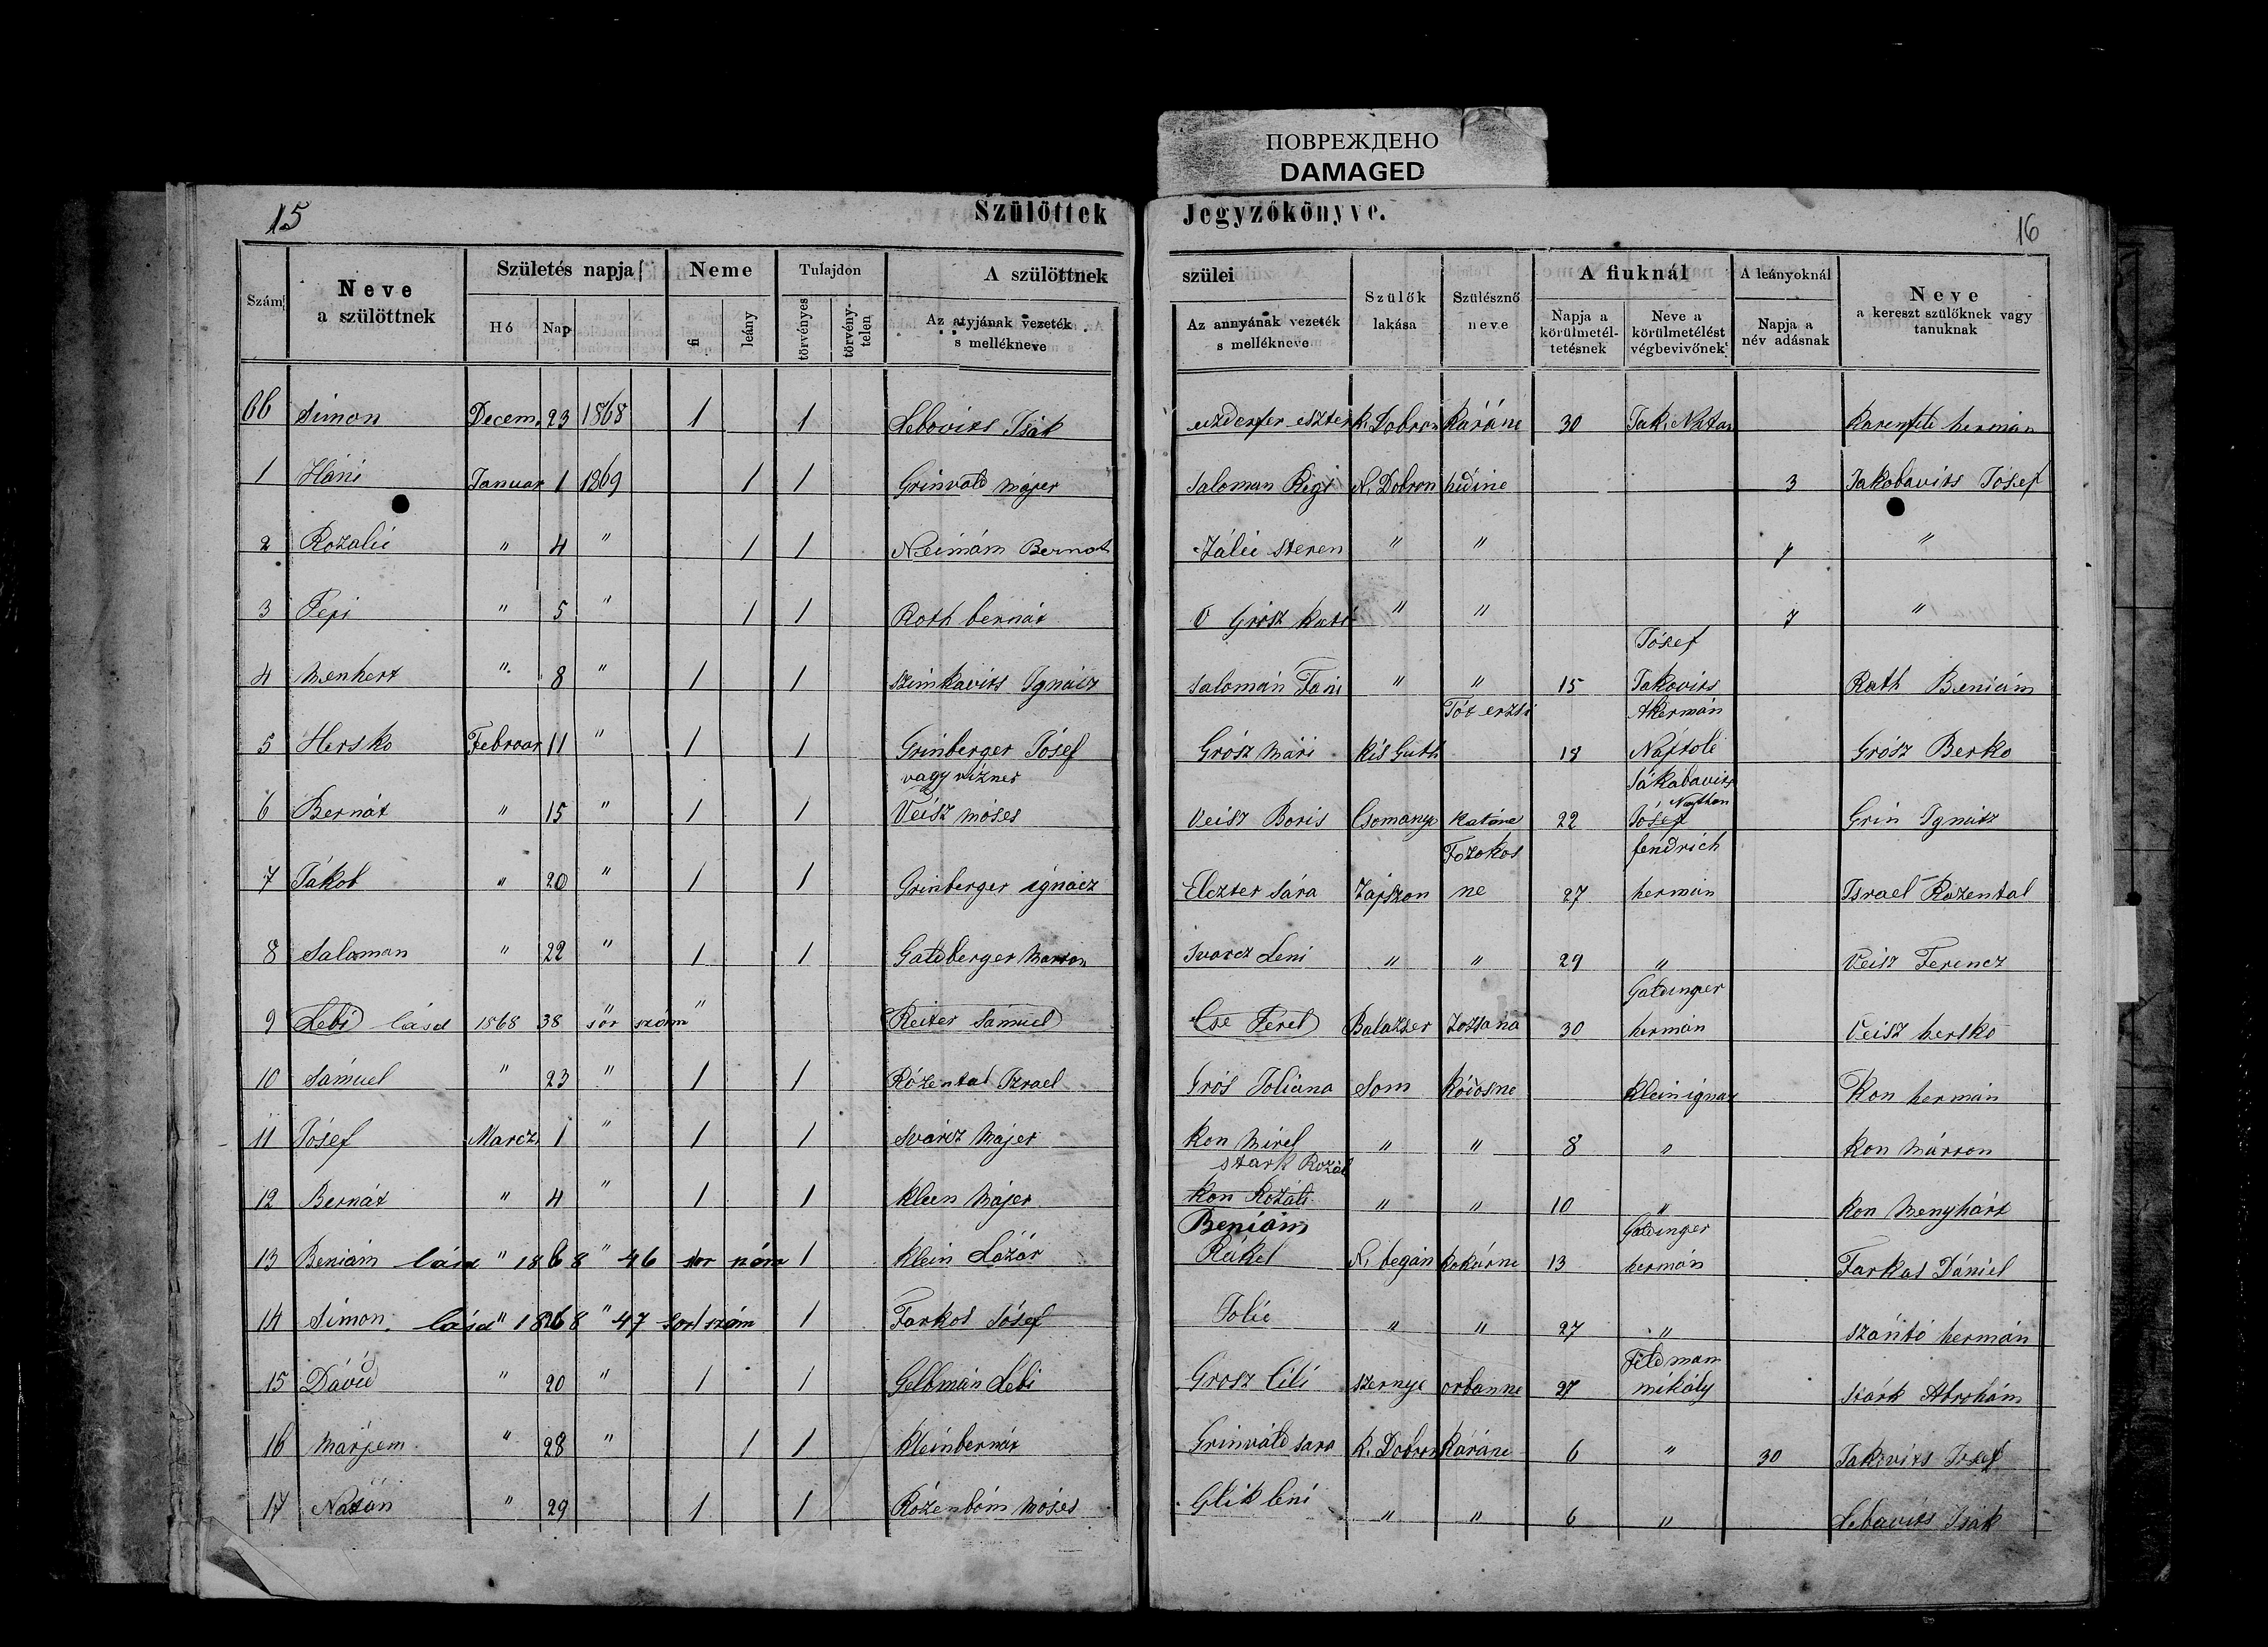 ПОВРЕЖДЕНО
DAMAGED
15
Szülöttek Jegyzőkönyve.
16
Szám
Neve a szülöttnek
Születés napja
Hó Nap
Neme
fi leány
Tulajdon
törvényes törvény-telen
A szülöttnek szülei
Az atyjának vezeték s mellékneve
Az annyának vezeték s mellékneve
Szülők lakása
Szülésznő neve
A fiuknál
Napja a körülmetél-tetésnek
Neve a körülmetélést végbevivőnek
A leányoknál
Napja a név adásnak
Neve a kereszt szülőknek vagy tanuknak
66 Simon Decem. 23 1868 1 1 Lebovits Isák eszter K. Dobron Káráne 30 Jak. Natan hermán
1 Háni Januar 1 1869 1 1 Grinvald Majer Saloman Regi N. Dobron hidine 3 Jakobavits Jósef
2 Rozalii " 4 " 1 1 Neimám Bernat Zálii " " "
3 Pepi " 5 " 1 1 Roth bernát Grósz Kati " " 7 "
Jósef
4 Menhert " 8 " 1 1 Szimkavits Ignácz Salomán Fani " " 15 Jakovits Rath Beniám
Tót erzsi Akermán
5 Hersko Febroar 11 " 1 1 Grinberger Jósef Grósz Mári Kis Guth 18 Naftole Grósz Berko
vagy vizner Jákabavits
Nathan
6 Bernát " 15 " 1 1 Veisz Móses Veisz Boris Csomanya Katóne 22 Jósef Grin Ignátz
Fozokos fendrich
7 Jákob " 20 " 1 1 Grinberger ignácz Elczter Sára Zápszon ne 27 hermán Israel Rozental
8 Salaman " 22 " 1 1 Gatdberger Marton Svarcz Leni " " 29 " Veisz Ferencz
Galdinger
9 Lebi lásd 1868 38 sor szám " Reiter Samuel Cse Ferel Balazser Zozsana 30 hermán Veisz hersko
10 Sámuel " 23 " 1 1 Rózental Izrael Grós Joliana Som Kócosne Klein ignaz Kon hermán
11 Jósef Marcz 1 " 1 1 Svárcz Majer Kon Mirel " " 8 " Kon Márton
Stark Rozál
12 Bernát " 4 " 1 1 Klein Májer Kon Rozáli " " 10 " Kon Menyhárt
Beniám Galdinger
13 Beniám lásd " 1868 " 46 sor nám 1 Klein Lázár Rákel N. begán Kokárne 13 hermán Farkas Dániel
14 Simon lásd " 1868 " 47 sor szám 1 Farkos Jósef Jolii " " 27 " Szántó hermán
Feldmam
15 Dávid " 20 " 1 1 Gelbmán Lebi Grosz Cili Szernye orbanne 27 mihály Stárk Abrohám
16 Marjem " 28 " 1 1 Klein bernát Grinváld Sara K. Dobron Káráne 6 " 30 Jakovits Josef
17 Natán " 29 1 1 Rózenbóm Móses Glik leni " " 6 " Lebavits Isák